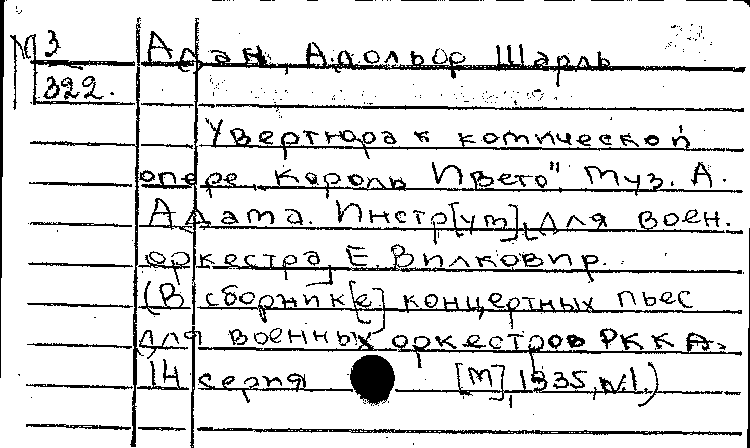 М 3
322.
Адан, Адольф Шарль
Увертюра к комической
опере "Король Ивето". Муз. А.
Адама. Инстр[ум]. для воен.
оркестра Е. Вилковир.
(В сборник[е] концертных пьес
для военных оркестров РККА.
14 серия [М], 1935, №1.)